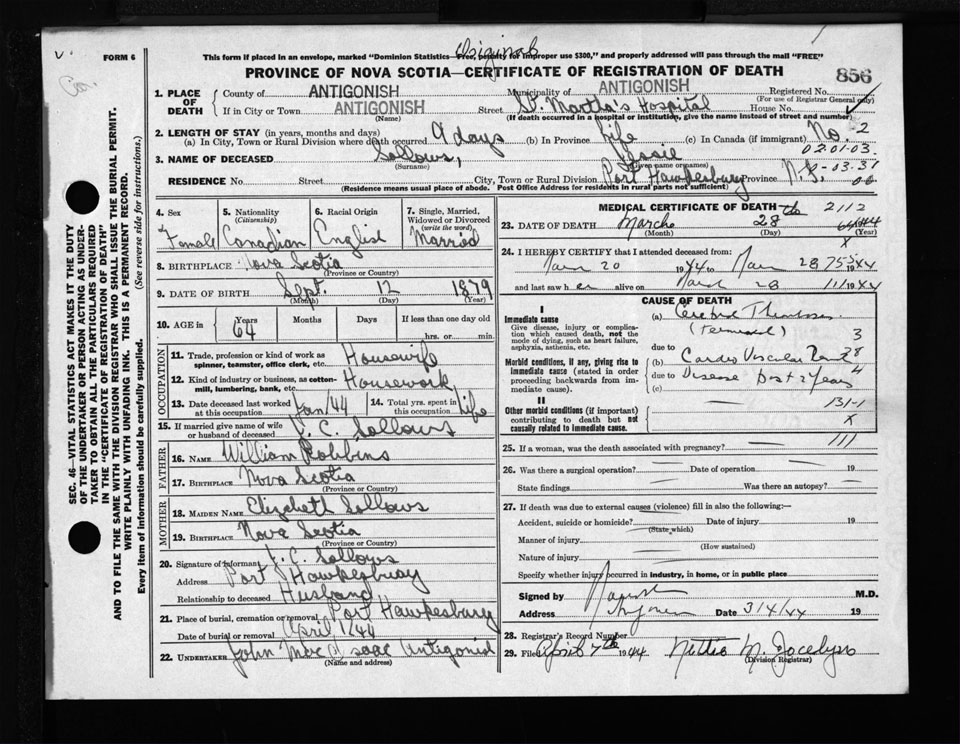 Original
FORM 6 This form if placed in an envelope, marked "Dominion Statistics—Free, penalty for improper use $300," and properly addressed will pass through the mail "FREE"
PROVINCE OF NOVA SCOTIA—CERTIFICATE OF REGISTRATION OF DEATH 856
1. PLACE OF DEATH
County of ANTIGONISH Municipality of ANTIGONISH Registered No.
(For use of Registrar General only)
If in City or Town ANTIGONISH Street St. Martha's Hospital House No.
(Name) (If death occurred in a hospital or institution, give the name instead of street and number)
2. LENGTH OF STAY (in years, months and days)
(a) In City, Town or Rural Division where death occurred 9 days (b) In Province Life (c) In Canada (if immigrant) No. 2
02.01.03.
3. NAME OF DECEASED Sollows, Jessie
(Surname) (Given name or names)
RESIDENCE No. Street City, Town or Rural Division Port Hawkesbury Province N.S. -03-31
(Residence means usual place of abode. Post Office Address for residents in rural parts not sufficient) 00
4. Sex 5. Nationality (Citizenship) 6. Racial Origin 7. Single, Married, Widowed or Divorced (write the word)
Female Canadian English Married
8. BIRTHPLACE Nova Scotia
(Province or Country)
9. DATE OF BIRTH Sept. 12 1879
(Month) (Day) (Year)
10. AGE in Years Months Days If less than one day old
64 hrs. or min.
OCCUPATION
11. Trade, profession or kind of work as spinner, teamster, office clerk, etc. Housewife
12. Kind of industry or business, as cotton-mill, lumbering, bank, etc. Housework
13. Date deceased last worked at this occupation Jan/44 14. Total yrs. spent in this occupation Life
15. If married give name of wife or husband of deceased J. C. Sollows
FATHER
16. NAME William Robbins
17. BIRTHPLACE Nova Scotia
(Province or Country)
MOTHER
18. MAIDEN NAME Elizabeth Sollows
19. BIRTHPLACE Nova Scotia
(Province or Country)
20. Signature of informant J. C. Sollows
Address Port Hawkesbury
Relationship to deceased Husband
21. Place of burial, cremation or removal Port Hawkesbury
Date of burial or removal April 1/44
22. UNDERTAKER John Mac Isaac Antigonish
(Name and address)
MEDICAL CERTIFICATE OF DEATH
23. DATE OF DEATH March 28th 2112
(Month) (Day) (Year)
24. I HEREBY CERTIFY that I attended deceased from:
Mar 20 1944 to Mar 28 1944
and last saw her alive on March 28 1944
CAUSE OF DEATH
I
Immediate cause
Give disease, injury or complication which caused death, not the mode of dying, such as heart failure, asphyxia, asthenia, etc.
(a) Cerebral Thrombosis
(Terminal) 3
due to
Morbid conditions, if any, giving rise to immediate cause (stated in order proceeding backwards from immediate cause).
(b) Cardio Vascular
due to Disease past 2 years
(c)
II
Other morbid conditions (if important) contributing to death but not causally related to immediate cause.
131-1
X
111
25. If a woman, was the death associated with pregnancy?
26. Was there a surgical operation? Date of operation 19
State findings Was there an autopsy?
27. If death was due to external causes (violence) fill in also the following:—
Accident, suicide or homicide? Date of injury 19
(State which)
Manner of injury
(How sustained)
Nature of injury
Specify whether injury occurred in industry, in home, or in public place
Signed by M.D.
Address Date 3/4/44 19
28. Registrar's Record Number
29. Filed April 7th 1944 Nettie M. Jocelyn
(Division Registrar)
SEC. 46—VITAL STATISTICS ACT MAKES IT THE DUTY
OF THE UNDERTAKER OR PERSON ACTING AS UNDER-
TAKER TO OBTAIN ALL THE PARTICULARS REQUIRED
IN THE "CERTIFICATE OF REGISTRATION OF DEATH"
AND TO FILE THE SAME WITH THE DIVISION REGISTRAR WHO SHALL ISSUE THE BURIAL PERMIT.
WRITE PLAINLY WITH UNFADING INK. THIS IS A PERMANENT RECORD.
Every item of information should be carefully supplied. (See reverse side for instructions.)